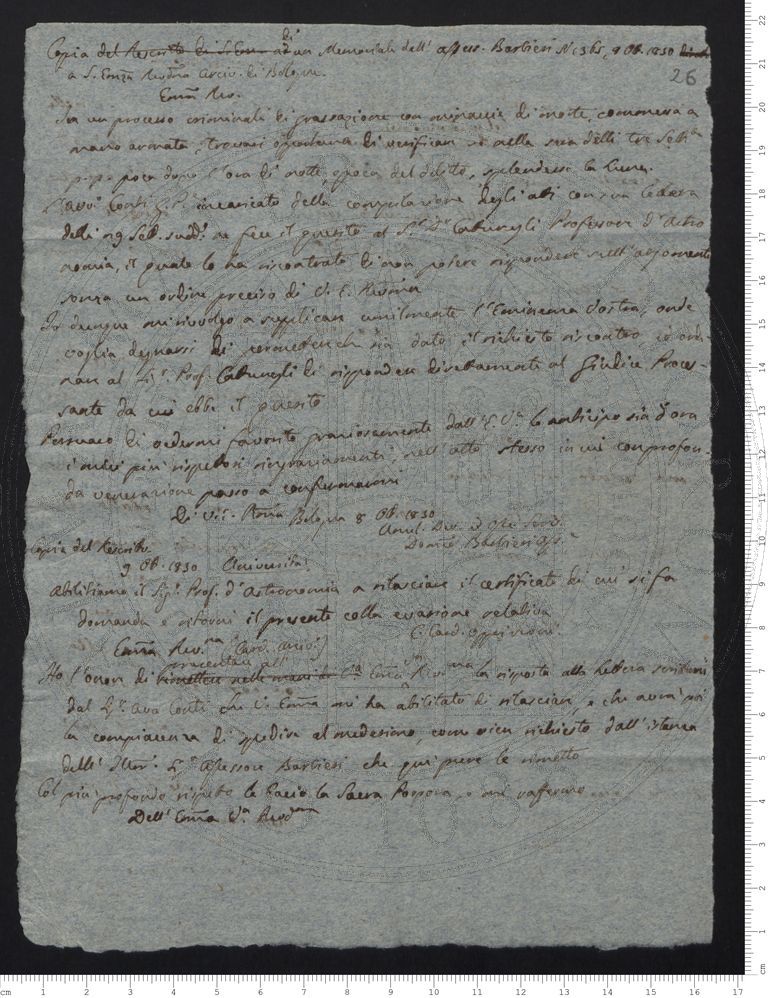 di
Copia del Rescritto di S. Em. ad un Memoriale dell' assess. Barbieri N. 365, 9 Ob. 1830
26
a S. Emza Revma Arciv. di Bologna
Emo Rev.
In un processo criminale di grassazione con minaccie di morte, commessa a
mano armata, trovasi opportuno di verificare se nella sera delli tre Sette
p.p. poco dopo l'ora di notte epoca del delitto, splendesse la Luna.
L'avv. Conti G. P. incaricato della compilazione degli atti con sua lettera
delli 29 Seb. sudd. ne fece il quesito al Sr. Dr. Caturegli Professore d'Astro
nomia, il quale lo ha riscontrato di non potere rispondere sull'argomento
senza un ordine preciso di V. E. Revma
Io dunque mi rivolgo a supplicare umilmente l'Eminenza Vostra, onde
voglia degnarsi di permettere che sia dato il richiesto riscontro ed ordi-
nare al Sigr. Prof. Caturegli di rispondere direttamente al Giudice Proces-
sante da cui ebbe il quesito
Persuaso di vedermi favorito graziosamente dall'E. Va. le anticipo sin d'ora
i miei più rispettosi ringraziamenti, nell'atto stesso in cui con profon-
da venerazione passo a confermarmi
Di V. E. Revma Bologna 8 Ob. 1830
Umil. Dev. ed Obb. Serv.
Barbieri Ass.
Copia del Rescritto
9 Ob. 1830 Università
Abilitiamo il Sigr. Prof. d'Astronomia a rilasciare il certificato di cui si fa
domanda e ritorni il presente colla evasione relativa
C. Card. Oppizzoni
Emza Revma (Card. Arciv.)
presentare all'
Ho l'onore di rimettere nelle mani di Va Emza Revma la risposta alla lettera scrittami
dal Sigr. Avv. Conti che V. Emza mi ha abilitato di rilasciare, e che avrà poi
la compiacenza di spedire al medesimo, come vien richiesto dall'istanza
dell' Illmo Sigr. Assessore Barbieri che qui pure le rimetto
Col più profondo rispetto le bacio la Sacra Porpora, e mi raffermo
Dell' Emza Va Revdma